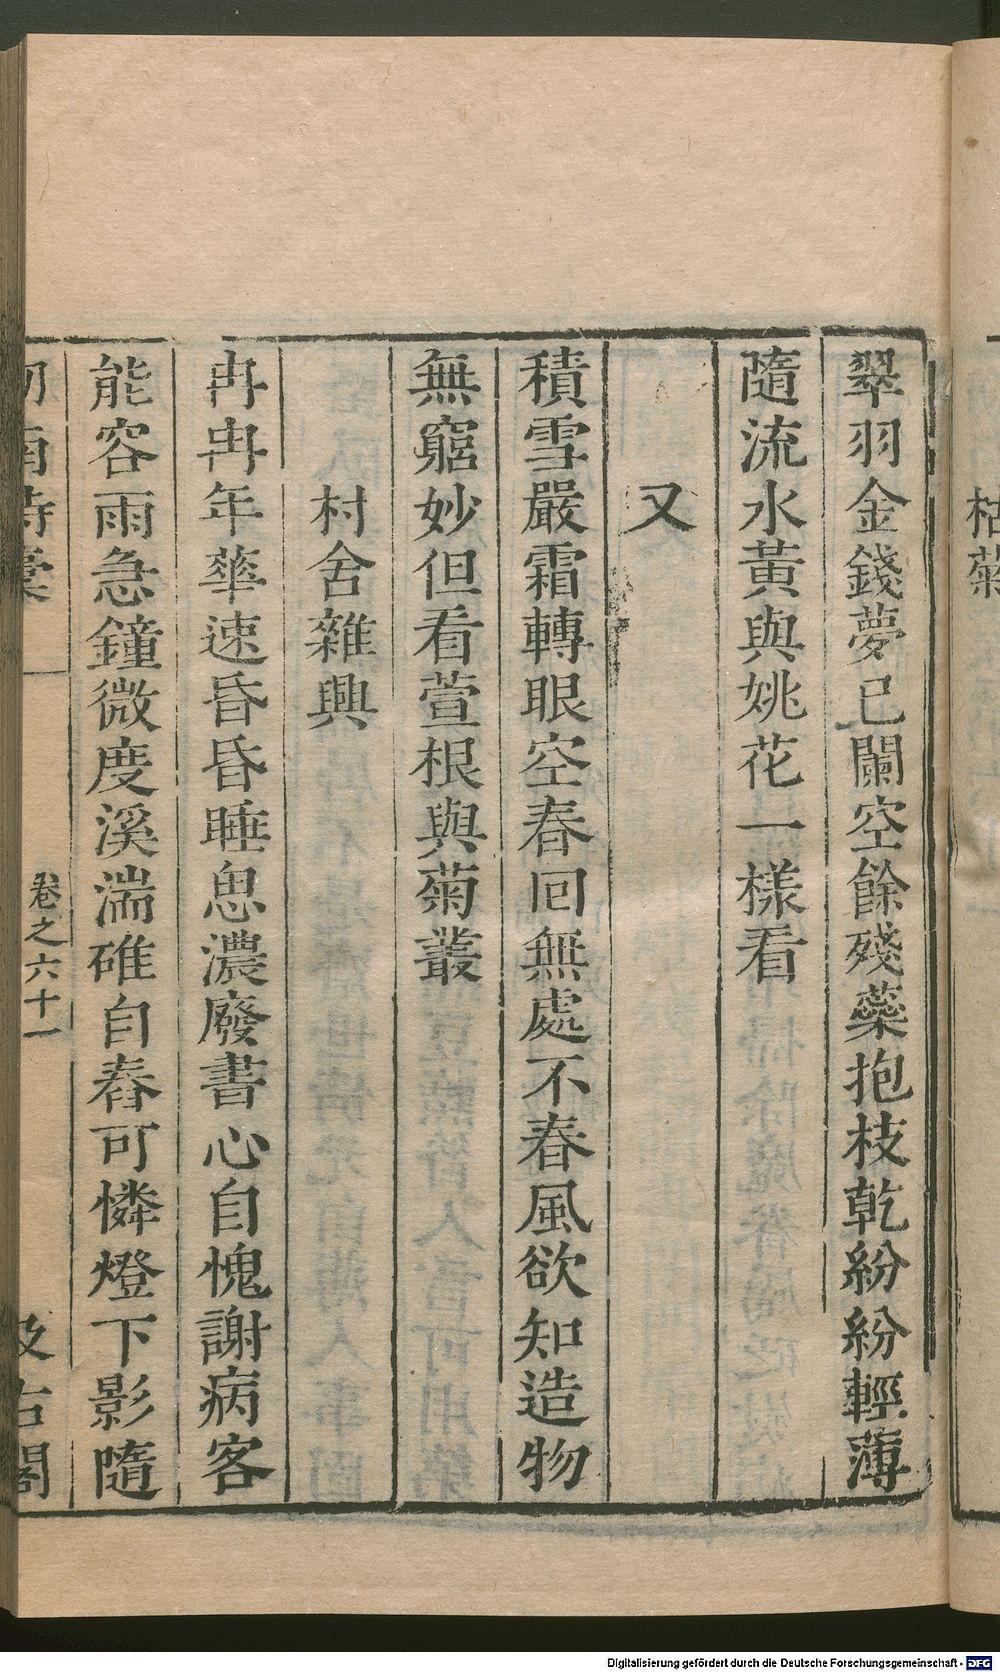 枯菊
翠羽金錢夢已闌空餘殘蘂抱枝乾紛紛輕薄
隨流水黃與姚花一樣看
又
積雪嚴霜轉眼空春回無處不春風欲知造物
無窮妙但看萱根與菊叢
村舍雜興
冉冉年華速昏昏睡思濃廢書心自愧謝病客
能容雨急鐘微度溪湍碓自舂可憐燈下影隨
劍南詩稾
卷之六十一
汲古閣
Digitalisierung gefördert durch die Deutsche Forschungsgemeinschaft - DFG